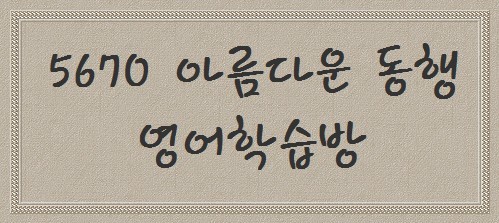 5670 아름다운 동행
영어학습방